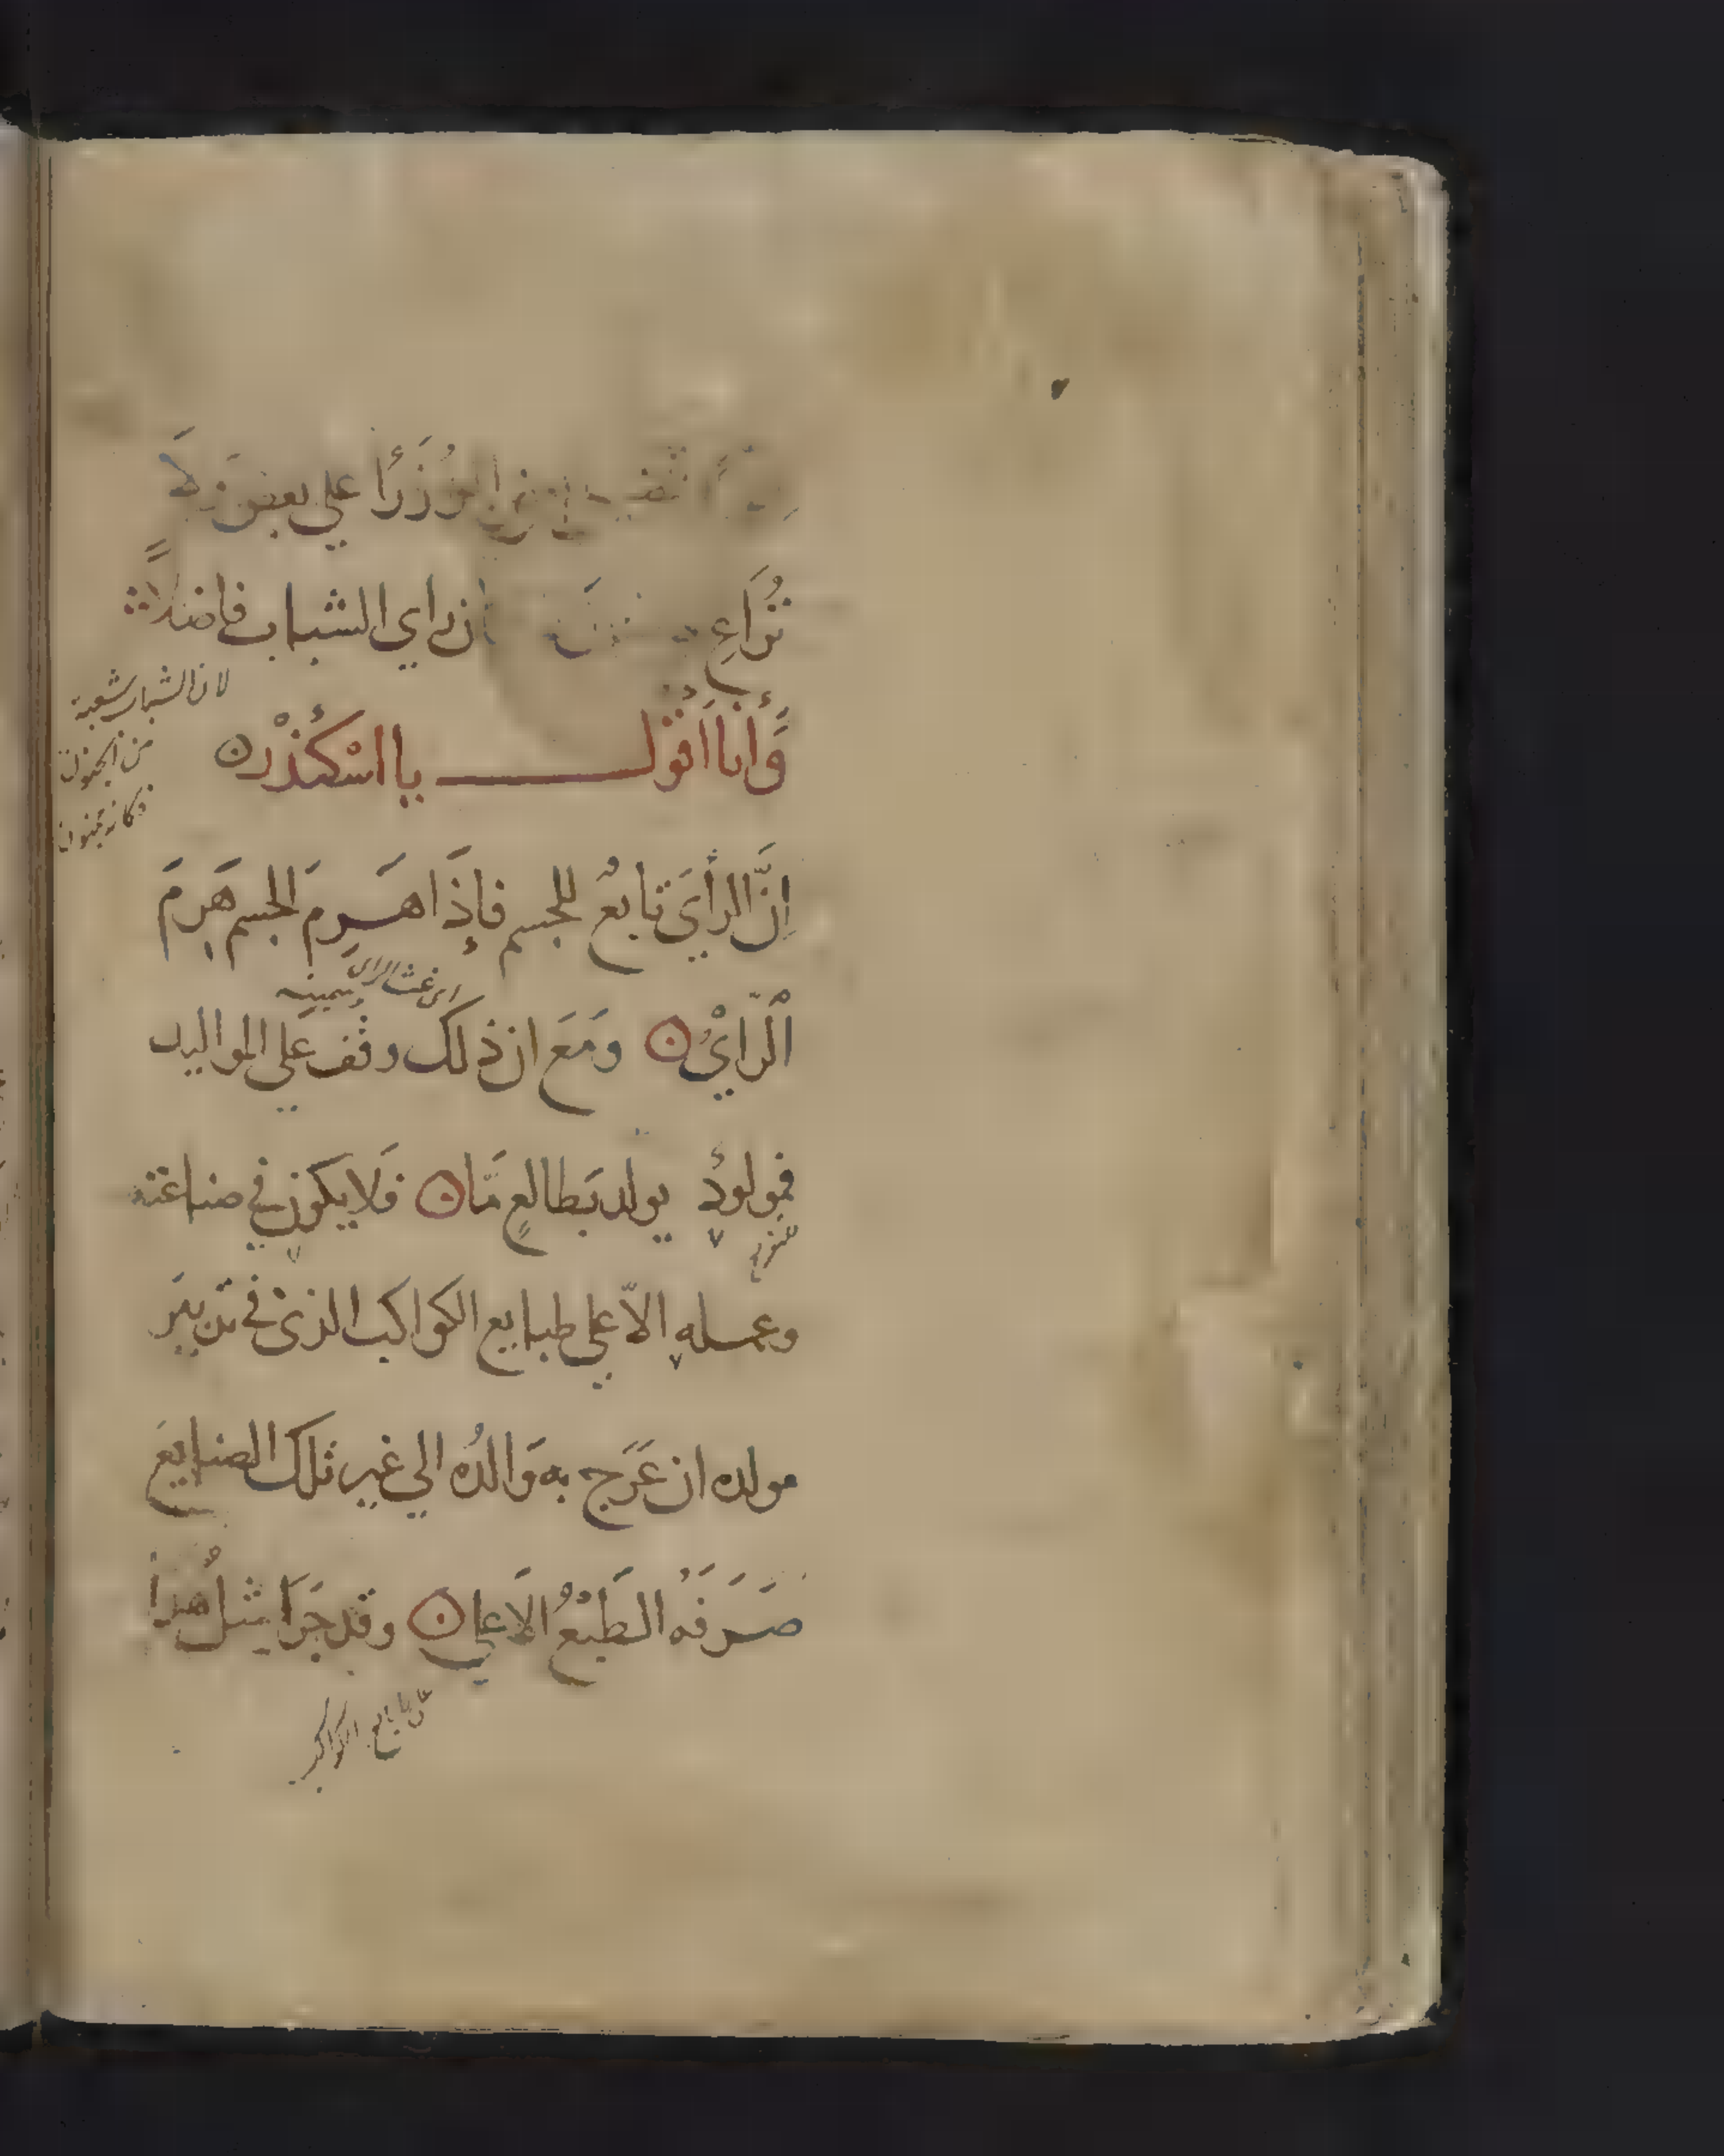 الوُزَرَأ على بعض لَا
تُرَاعِ ان راي الشباب فاضلاً
لان الشباب شعبة
من الجنون
وَأَنا أَقُول يا اسْكَنْدَر
اِنَّ الرأيَ تابعُ للجسم فإِذَا هَرِمَ الجسم هَرِمَ
الرَّايُ وَمَعَ ان ذلك وقف عَلي المواليد
فمولودٍ يولد بَطالعٍ مَّا فَلا يكون في صناعته
وعمله الاّ على طبايع الكواكب الذى في تدبير
مولده ان عَرَّج به وَالدُه الي غير تلك الصنايع
صَرَفَهُ الطَبْعُ الاَعلي وقد جَرَا مثلُ هذا